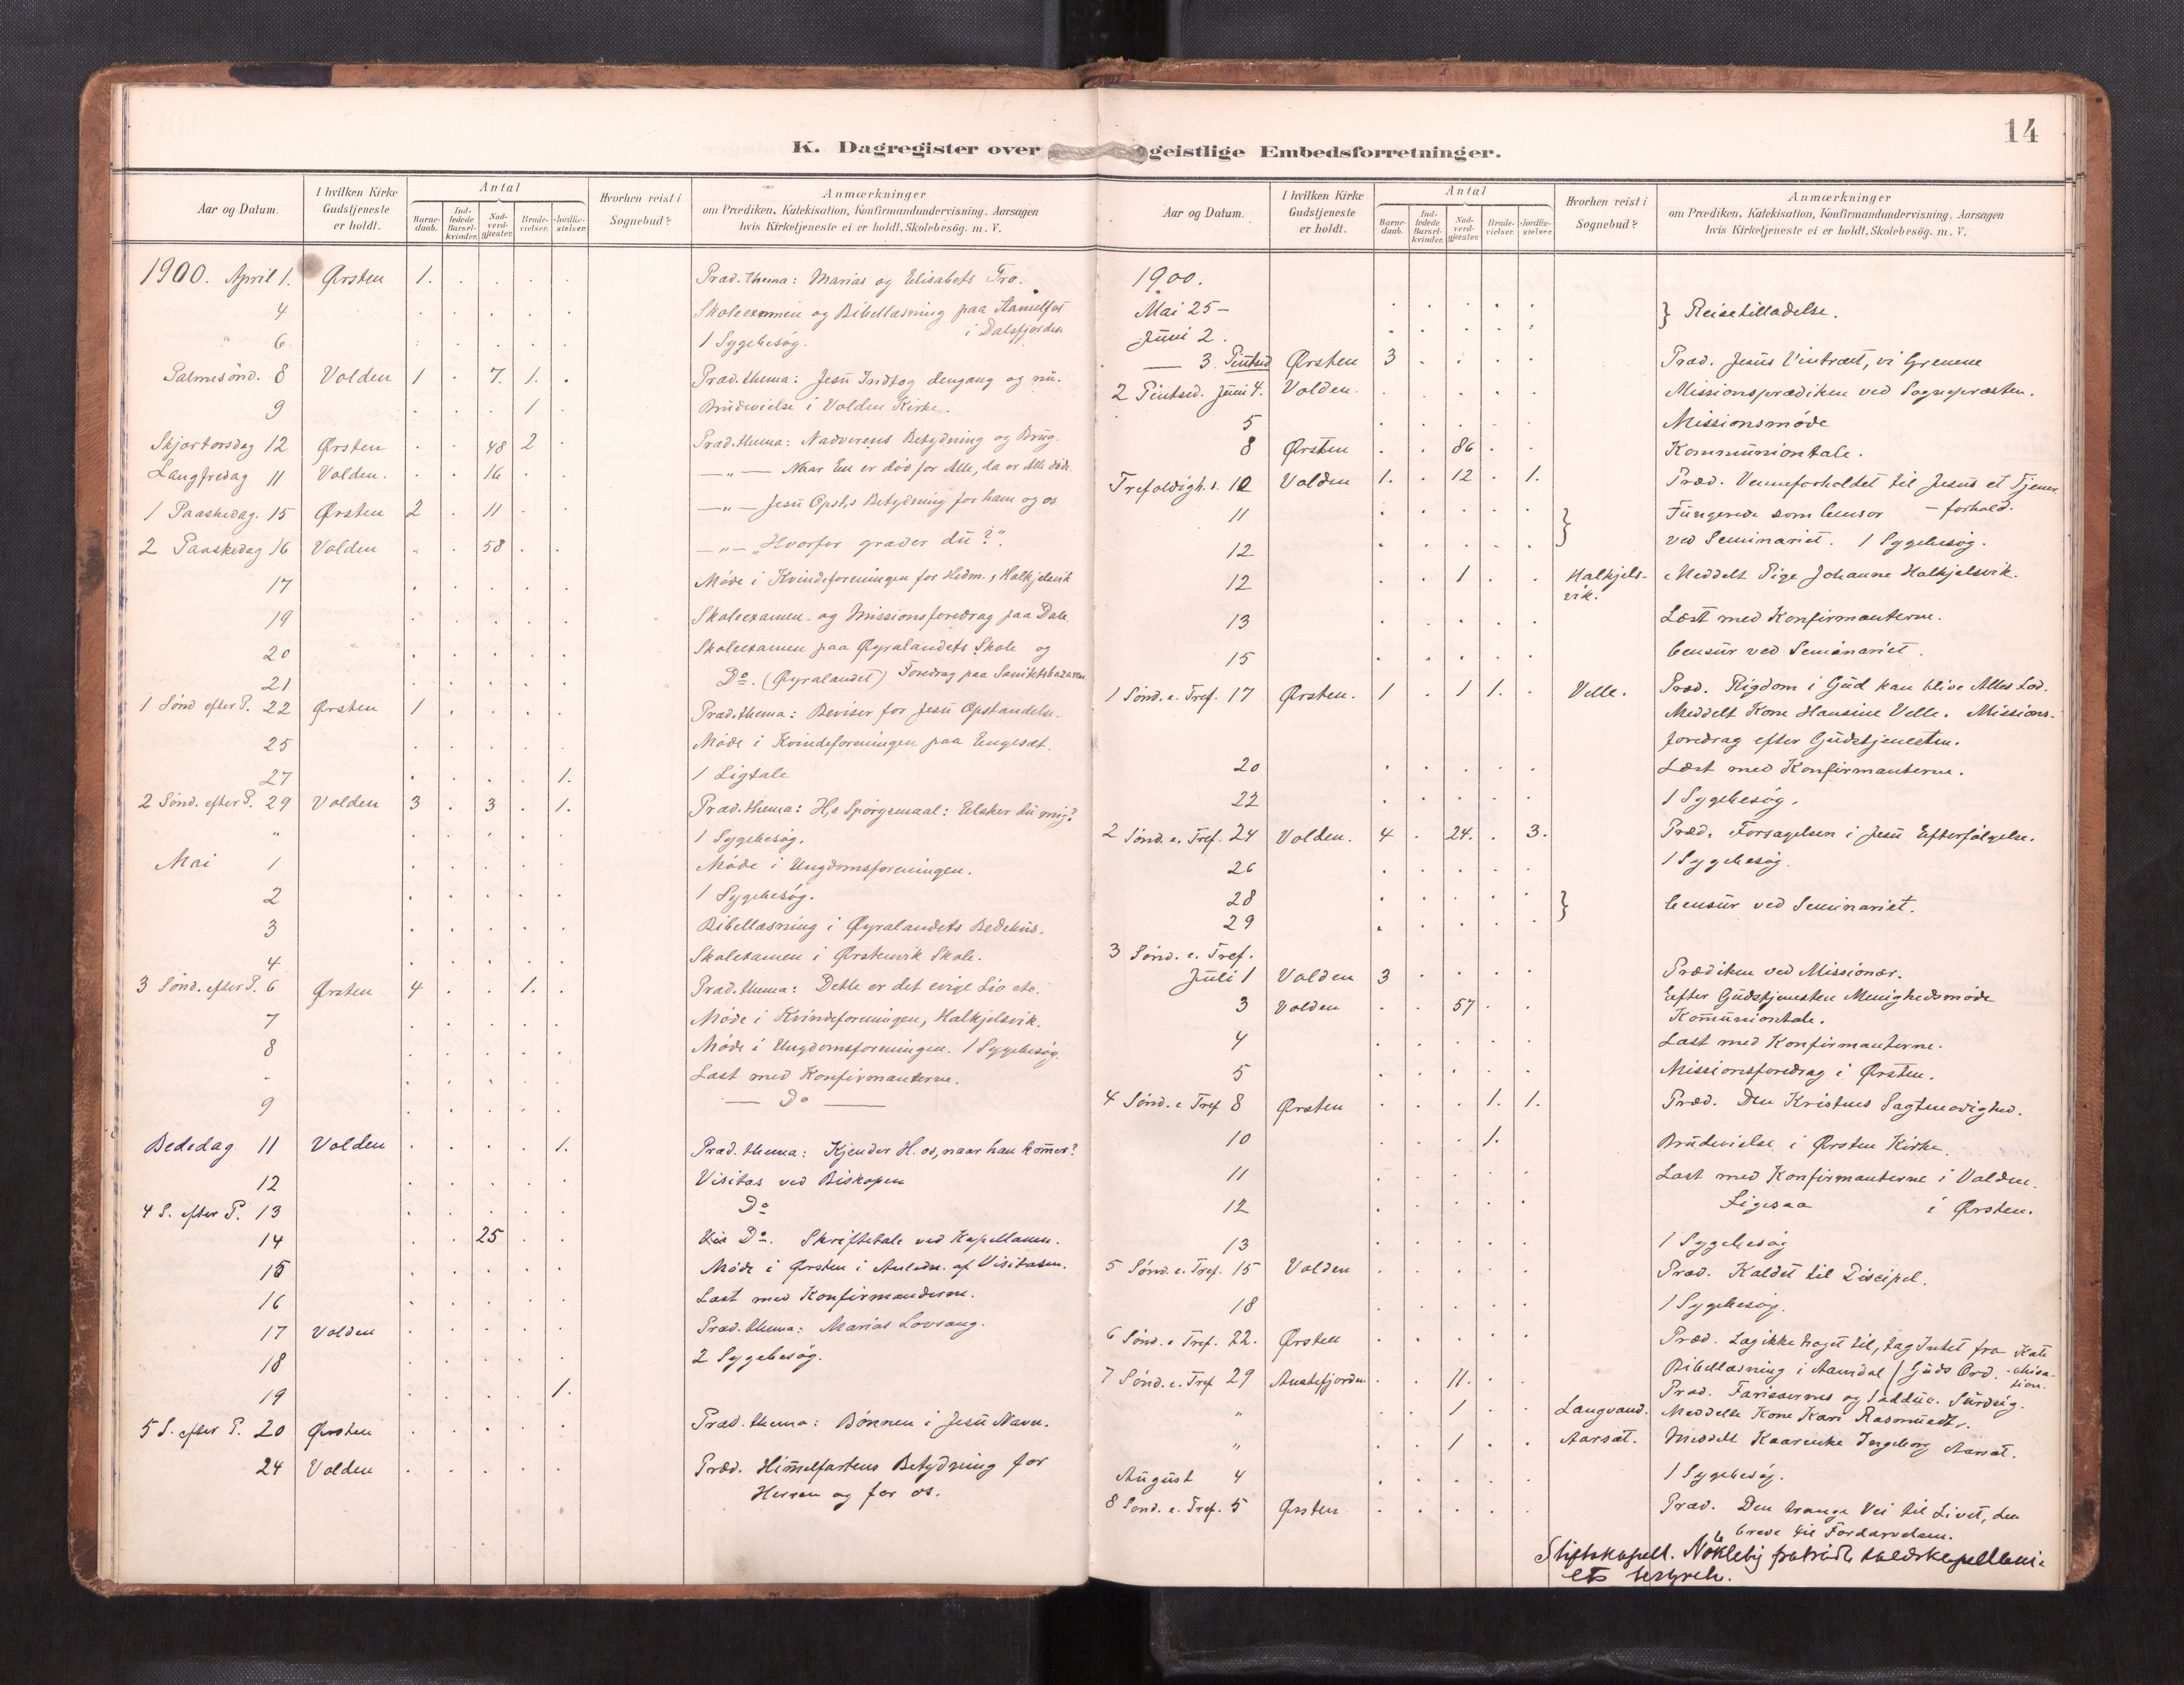 K. Dagregister over geistlige Embedsforretninger.
14
Aar og Datum.
I hvilken Kirke Gudstjeneste er holdt.
Antal
Barne-daab.
Ind-ledede Barsel-kvinder.
Nad-verd-gjæster.
Brude-vielser.
Jordfæ-stelser.
Hvorhen reist i Sognebud?
Anmærkninger
om Prædiken, Katekisation, Konfirmandundervisning. Aarsagen
hvis Kirketjeneste ei er holdt, Skolebesög. m. V.
1900. April 1. Ørsten 1. . . . . Præd. thema: Marias og Elisabets Tro.
4 . . . . . Skoleexamen og Bibellæsning paa Aamelfot
i Dalsfjorden
6 . . . . . 1 Sygebesög.
Palmesönd. 8 Volden 1 . 7. 1. . Præd. thema: Jesu Indtog dengang og nu.
9 . . . 1 . Brudevielse i Volden Kirke.
Skjærtorsdag 12 Ørsten . . 48 2 . Præd. thema: Nadverens Betydning og Brug.
Langfredag 11 Volden. . . 16 . . —„— Naar En er död for Alle, da er Alle döde.
1 Paaskedag. 15 Ørsten 2 . 11 . . —„— Jesu Opst,s Betydning for ham og os
2 Paaskedag 16 Volden . . 58 . . —„— „Hvorfor græder du?".
17 . . . . . Möde i Kvindeforeningen for Hedn., Halkjelsvik
19 . . . . . Skoleexamen og Missionsforedrag paa Dale.
20 . . . . . Skoleexamen paa Øyralandets Skole og
21 . . . . . Do. (Øyralandet) Foredrag paa Sanitetsbazaren
1 Sönd efter P. 22 Ørsten 1 . . . . Præd. thema: Beviser for Jesu Opstandelse.
25 . . . . . Möde i Kvindeforeningen paa Engeset.
27 . . . . 1. 1 Ligtale
2 Sönd. efter P. 29 Volden 3 . 3 . 1. Præd. thema: H,s Spörgsmaal: Elsker du mig?
„ . . . . . 1 Sygebesög.
Mai 1 . . . . . Möde i Ungdomsforeningen.
2 . . . . . 1 Sygebesög.
3 . . . . . Bibellæsning i Øyralandets Bedehus.
4 . . . . . Skolexamen i Ørstenvik Skole.
3 Sönd. efter P. 6 Ørsten 4 . . 1. . Præd. thema: Dette er det evige Liv etc.
7 . . . . . Möde i Kvindeforeningen, Halkjelsvik.
8 . . . . . Möde i Ungdomsforeningen. 1 Sygebesög.
- . . . . . Læst med Konfirmanterne.
9 . . . . . — Do —
Bededag 11 Volden . . . . 1. Præd. thema: Kjender H. os, naar han kom̄er?
12 . . . . . Visitas ved Biskopen
4 S. efter P. 13 . . . . . Do
14 . . 25 . . Do. Skriftetale ved Kapellanen.
15 . . . . . Möde i Ørsten i Anledn. af Visitasen.
16 . . . . . Læst med Konfirmanderne.
17 Volden . . . . . Præd. thema: Marias Lovsang.
18 . . . . . 2 Sygebesög.
19 . . . . 1.
5 S. efter P. 20 Ørsten . . . . . Præd. thema: Bönnen i Jesu Navn.
24 Volden . . . . . Præd. Him̄elfartens Betydning for
Herren og for os.
Aar og Datum.
I hvilken Kirke Gudstjeneste er holdt.
Antal
Barne-daab.
Ind-ledede Barsel-kvinder.
Nad-verd-gjæster.
Brude-vielser.
Jordfæ-stelser.
Hvorhen reist i Sognebud?
Anmærkninger
om Prædiken, Katekisation, Konfirmandundervisning. Aarsagen
hvis Kirketjeneste ei er holdt, Skolebesög. m. V.
1900.
Mai 25 – . . . . . } Reisetilladelse.
Juni 2. . . . . .
— 3. Pintsed Ørsten 3 . . . . Præd. Jesus Vintræet, vi Grenene
2 Pintsed. Juni 4. Volden. . . . . . Missionsprædiken ved Sognepræsten.
5 . . . . . Missionsmöde
8 Ørsten . . 86 . . Kommuniontale.
Trefoldigh. s. 10 Volden 1. . 12 . 1. Præd. Venneforholdet til Jesus et Tjener-
- forhold.
11 . . . . . } Fungerede som Censor
12 . . . . . ved Seminariet. 1 Sygebesög.
12 . . 1 . . Halkjels-vik. Meddelt Pige Johanne Halkjelsvik.
13 . . . . . Læst med Konfirmanterne.
15 . . . . . Censur ved Seminariet.
1 Sönd. e. Tref. 17 Ørsten. 1 . 1 1. . Velle. Præd. Rigdom i Gud kan blive Alles Lod.
Meddelt Kone Hansine Velle. Missions-
foredrag efter Gudstjenesten.
20 . . . . . Læst med Konfirmanterne.
22 . . . . . 1 Sygebesög.
2 Sönd. e. Tref. 24 Volden. 4 . 24. . 3. Præd. Forsagelsen i Jesu Efterfölgelse.
26 . . . . . 1 Sygebesög.
28 . . . . . } Censur ved Seminariet.
29 . . . . .
3 Sönd. e. Tref.
Juli 1 Volden 3 . . . . Prædiken ved Missionær.
Efter Gudstjenesten Menighedsmöde
3 Volden . . 57 . . Kom̄uniontale.
4 . . . . . Læst med Konfirmanterne.
5 . . . . . Missionsforedrag i Ørsten.
4 Sönd. e Tref 8 Ørsten . . . 1. 1. Præd. Den Kristnes Sagtmodighed.
10 . . . 1. Brudevielse i Ørsten Kirke.
11 . . . . . Læst med Konfirmanterne i Volden.
12 . . . . . Ligesaa i Ørsten.
13 . . . . . 1 Sygebesög
5 Sönd. e. Tref. 15 Volden . . . . . Præd. Kaldet til Discipel.
18 . . . . . 1 Sygebesög.
6 Sönd. e Tref. 22. Ørsten . . . . . Præd. Læg ikke noget til, tag Intet fra Kate
Bibellæsning i Aamdal / Guds Ord. -chisa-
tion.
7 Sönd. e. Tref 29 Austefjorden . . 11. . . Præd. Farisæernes og Sadduc. Surdeig.
„ . . 1 . . Langvand. Meddelt Kone Kari Rasmusdt.
„ . . 1 . . Aarsæt. Meddelt Kaarenke Ingeborg Aarsæt.
August 4 . . . . . 1 Sygebesög.
8 Sond. e. Tref. 5 Ørsten . . . . . Præd. Den trange Vei til Livet, den
brede til Fordærvelsen.
Stiftskapell. Nökleby fratraadte